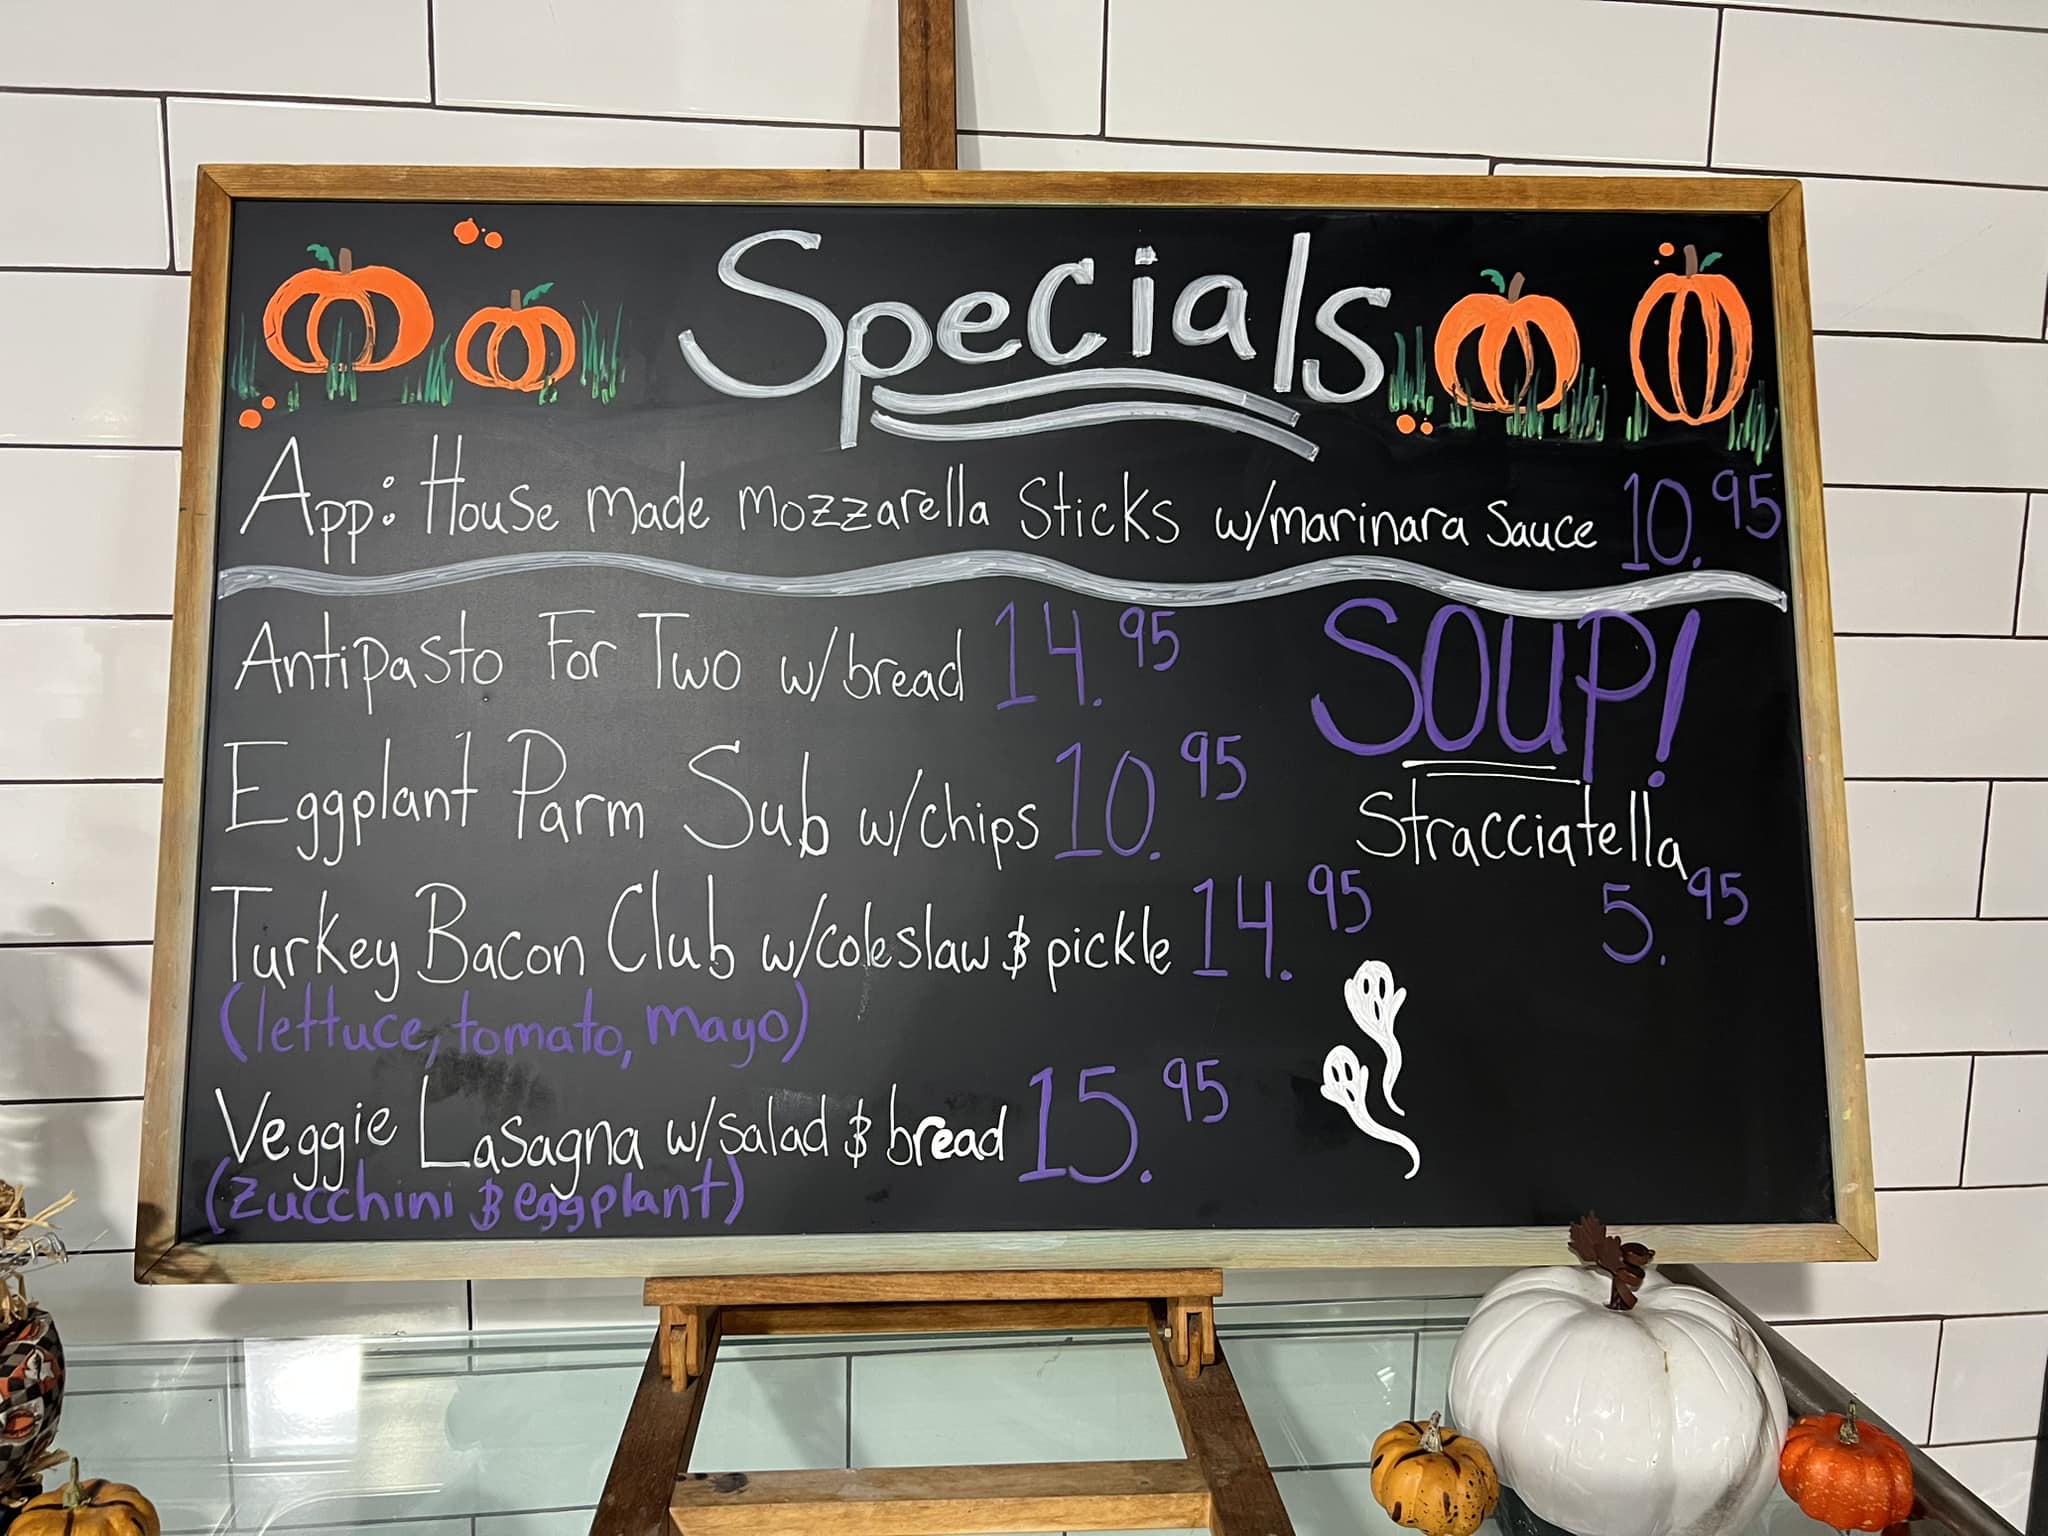 Specials
App: House made mozzarella Sticks w/marinara Sauce 10.95
Antipasto For Two w/bread 14.95
Eggplant Parm Sub w/chips 10.95
Turkey Bacon Club w/coleslaw & pickle 14.95
(lettuce, tomato, mayo)
Veggie Lasagna w/salad & bread 15.95
(zucchini & eggplant)
SOUP!
Stracciatella
5.95